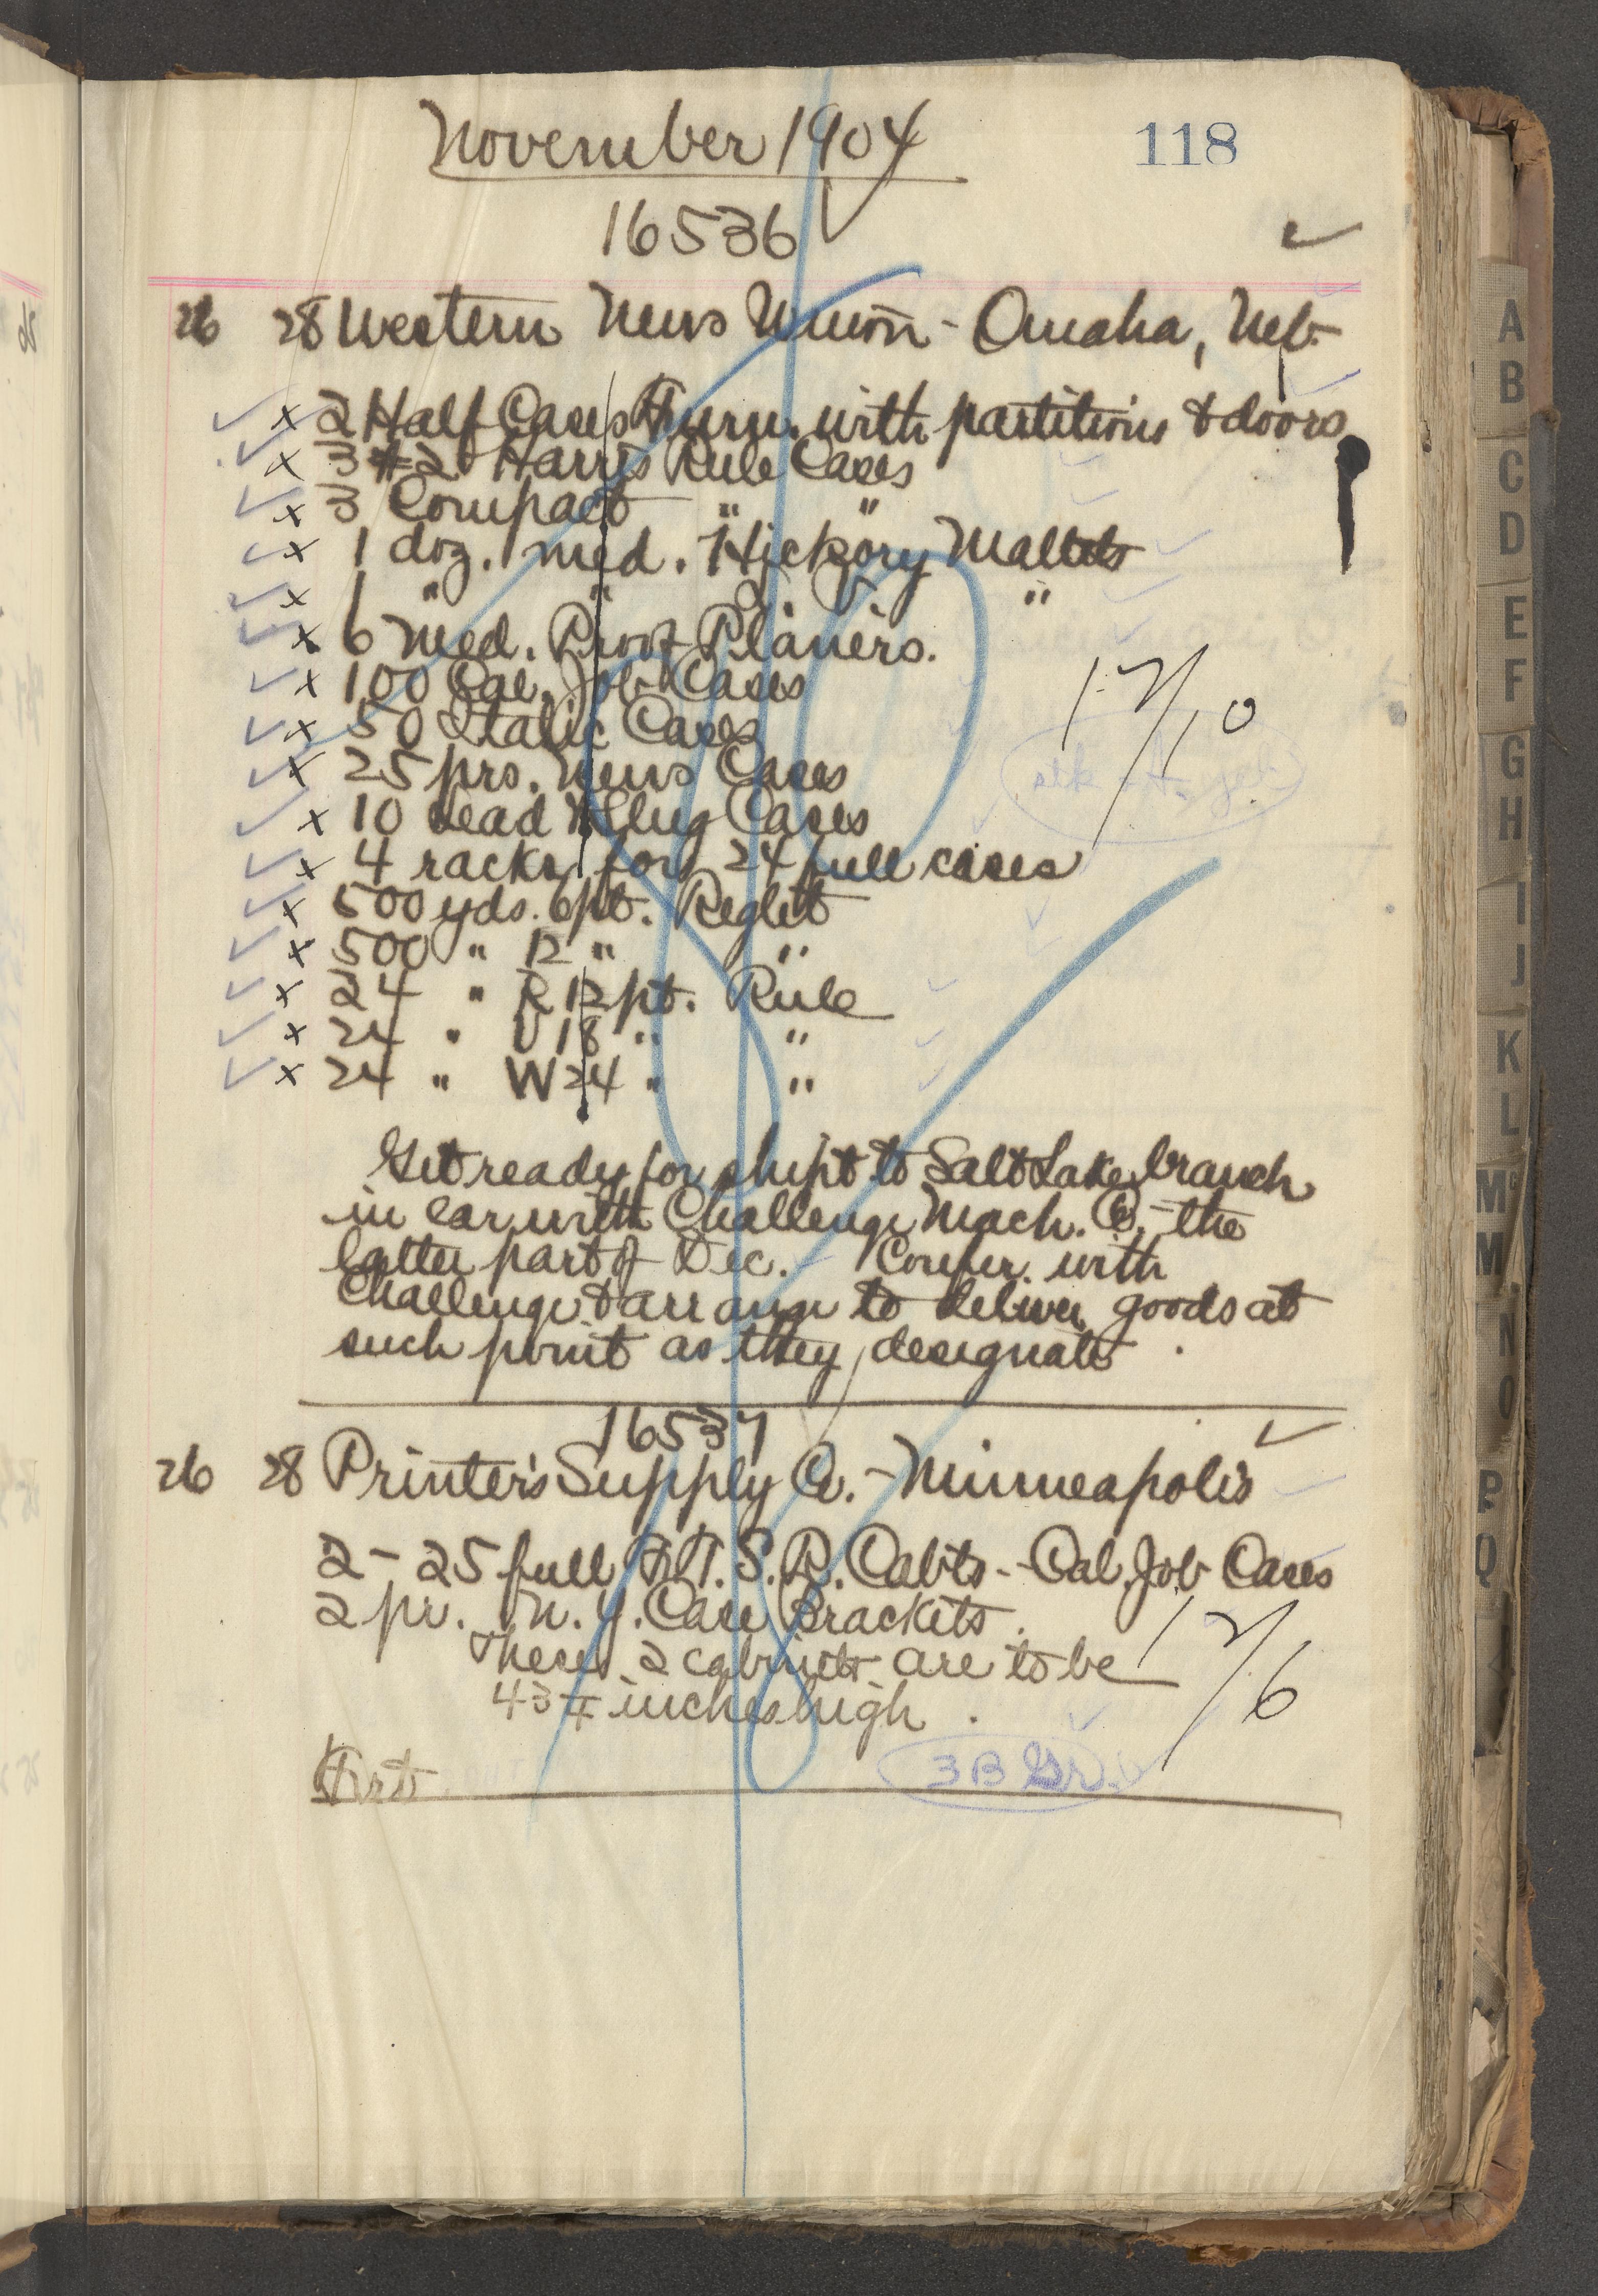 November 1904
118
16536
26 28 Western News Union - Omaha, Neb.
x 2 Half Cases Furn. with partitions & doors
x 3 #2 Harris Rule Cases
x 3 Compact " "
x 1 doz. med. Hickory Mallets
x 1 " " "
x 6 Med. Proof Planers.
x 100 Cal. Job Cases
x 50 Italic Cases
x 25 prs. News Cases
x 10 Lead & Slug Cases
x 4 racks for 24 full cases
12/10
x 500 yds. 6 pt. Reglet
x 500 " 12 " "
x 24 " R 12 pt. Rule
x 24 " U 18 " "
x 24 " W 24 " "
Get ready for shipt to Salt Lake branch
in car with Challenge Mach. Co. - the
latter part of Dec. - Confer. with
Challenge & arrange to deliver goods at
such point as they designate.
16537
26 28 Printer's Supply Co. - Minneapolis
2 - 25 full F.T.S.R. Cabts - Cal. Job Cases
2 pr. N.Y. Case Brackets.
These 2 cabinets are to be
43 1/4 inches high.
12/6
Frt.
3 B Gr.
A
B
C
D
E
F
G
H
I
J
K
L
Mc
M
N
O
P
Q